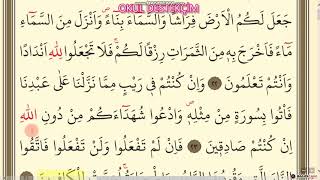 OKUL DESTEKÇİM
جَعَلَ لَكُمُ الْاَرْضَ فِرَاشًا وَالسَّمَٓاءَ بِنَٓاءًۖ وَاَنْزَلَ مِنَ السَّمَٓاءِ
مَٓاءً فَاَخْرَجَ بِه۪ مِنَ الثَّمَرَاتِ رِزْقًا لَكُمْۚ فَلَا تَجْعَلُوا لِلّٰهِ اَنْدَادًا
وَاَنْتُمْ تَعْلَمُونَ ﴿٢٢﴾ وَاِنْ كُنْتُمْ ف۪ي رَيْبٍ مِمَّا نَزَّلْنَا عَلٰى عَبْدِنَا
فَأْتُوا بِسُورَةٍ مِنْ مِثْلِه۪ۖ وَادْعُوا شُهَدَٓاءَكُمْ مِنْ دُونِ اللّٰهِ
اِنْ كُنْتُمْ صَادِق۪ينَ ﴿٢٣﴾ فَاِنْ لَمْ تَفْعَلُوا وَلَنْ تَفْعَلُوا فَاتَّقُوا